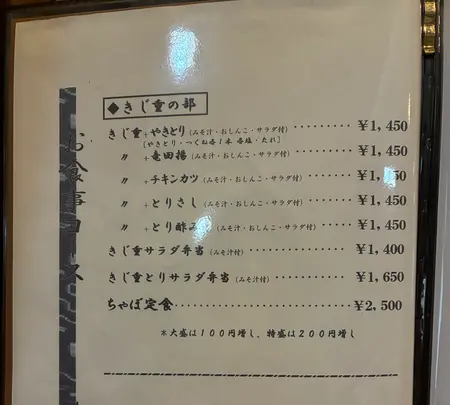 お食事コース
◆きじ重の部
きじ重+やきとり(みそ汁・おしんこ・サラダ付)・・・・・・・・・¥1,450
[やきとり・つくね各1本 各塩・たれ]
〃 +竜田揚(みそ汁・おしんこ・サラダ付)・・・・・・・・・¥1,450
〃 +チキンカツ(みそ汁・おしんこ・サラダ付)・・・・・・・¥1, 50
〃 +とりさし(みそ汁・おしんこ・サラダ付)・・・・・・・・¥1,450
〃 +とり酢み (みそ汁・おしんこ・サラダ付)・・・・・・・¥1,450
きじ重サラダ弁当(みそ汁付)・・・・・・・・・・・・・・¥1,400
きじ重とりサラダ弁当(みそ汁付)・・・・・・・・・・・¥1,650
ちゃぼ定食・・・・・・・・・・・・・・・・・・・・¥2,500
*大盛は100円増し、特盛は200円増し